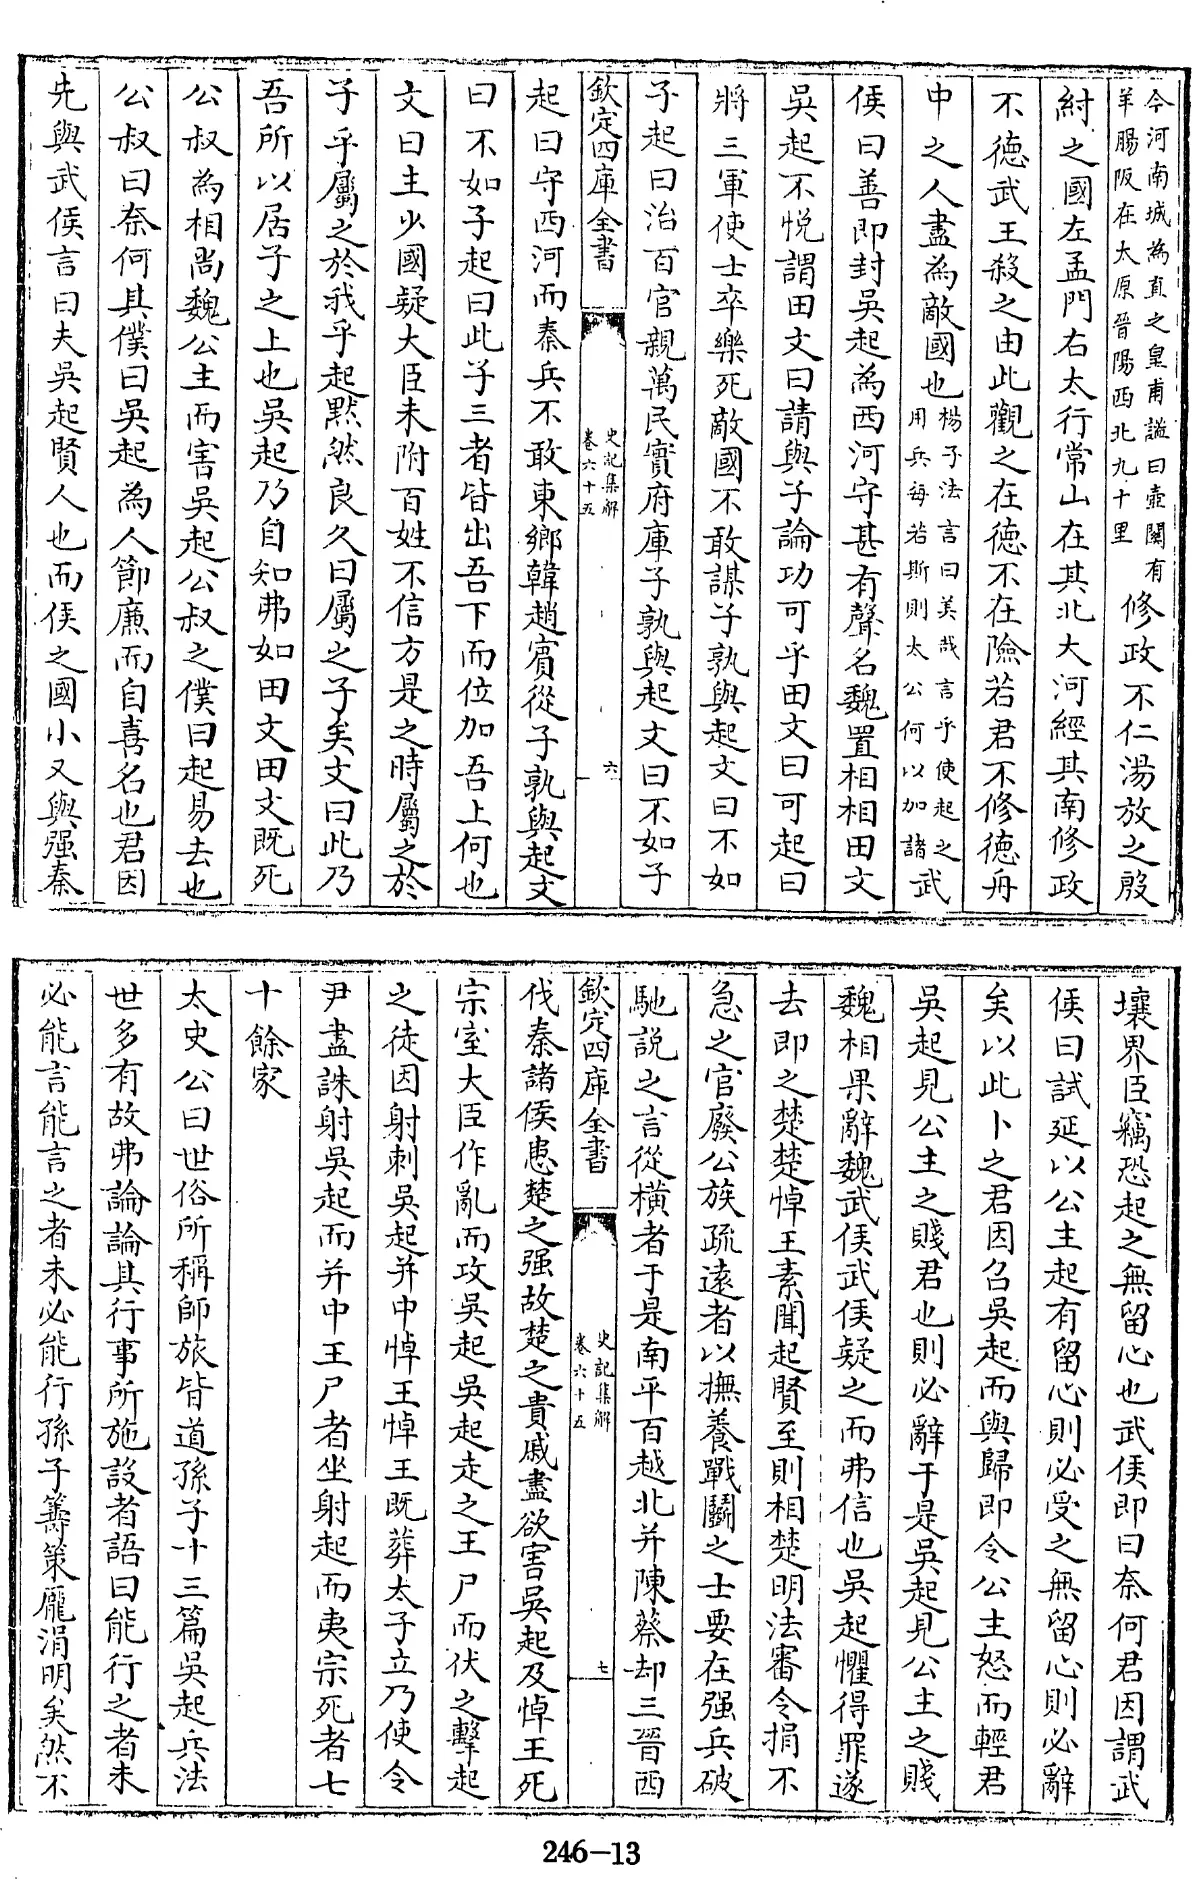 今河南城為直之皇甫謐曰壺關有
羊腸阪在太原晉陽西北九十里
修政不仁湯放之殷
紂之國左孟門右太行常山在其北大河經其南修政
不德武王殺之由此觀之在德不在險若君不修德舟
中之人盡為敵國也
楊子法言曰美哉言乎使起之
用兵每若斯則太公何以加諸
武
侯曰善即封吳起為西河守甚有聲名魏置相相田文
吳起不悅謂田文曰請與子論功可乎田文曰可起曰
將三軍使士卒樂死敵國不敢謀子孰與起文曰不如
子起曰治百官親萬民實府庫子孰與起文曰不如子
欽定四庫全書
史記集解
卷六十五
六
起曰守西河而秦兵不敢東鄉韓趙賓從子孰與起文
曰不如子起曰此子三者皆出吾下而位加吾上何也
文曰主少國疑大臣未附百姓不信方是之時屬之於
子乎屬之於我乎起黙然良久曰屬之子矣文曰此乃
吾所以居子之上也吳起乃自知弗如田文田文既死
公叔為相尚魏公主而害吳起公叔之僕曰起易去也
公叔曰奈何其僕曰吳起為人節廉而自喜名也君因
先與武侯言曰夫吳起賢人也而侯之國小又與强秦
壤界臣竊恐起之無留心也武侯即曰奈何君因謂武
侯曰試延以公主起有留心則必受之無留心則必辭
矣以此卜之君因召吳起而與歸即令公主怒而輕君
吳起見公主之賤君也則必辭于是吳起見公主之賤
魏相果辭魏武侯武侯疑之而弗信也吳起懼得罪遂
去即之楚楚悼王素聞起賢至則相楚明法審令捐不
急之官廢公族疏遠者以撫養戰鬭之士要在强兵破
馳說之言從橫者于是南平百越北并陳蔡却三晉西
欽定四庫全書
史記集解
卷六十五
七
伐秦諸侯患楚之强故楚之貴戚盡欲害吳起及悼王死
宗室大臣作亂而攻吳起吳起走之王尸而伏之擊起
之徒因射刺吳起并中悼王悼王既葬太子立乃使令
尹盡誅射吳起而并中王尸者坐射起而夷宗死者七
十餘家
太史公曰世俗所稱師旅皆道孫子十三篇吳起兵法
世多有故弗論論其行事所施設者語曰能行之者未
必能言能言之者未必能行孫子籌策龐涓明矣然不
246-13